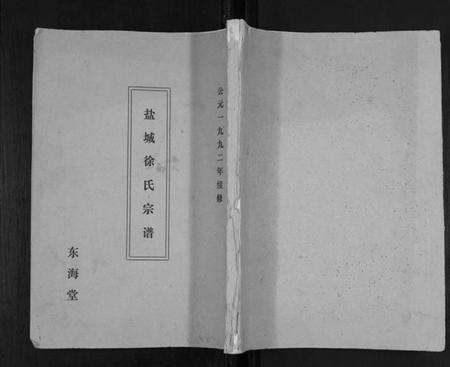 盐城徐氏宗谱
东海堂
公元一九九二年续修